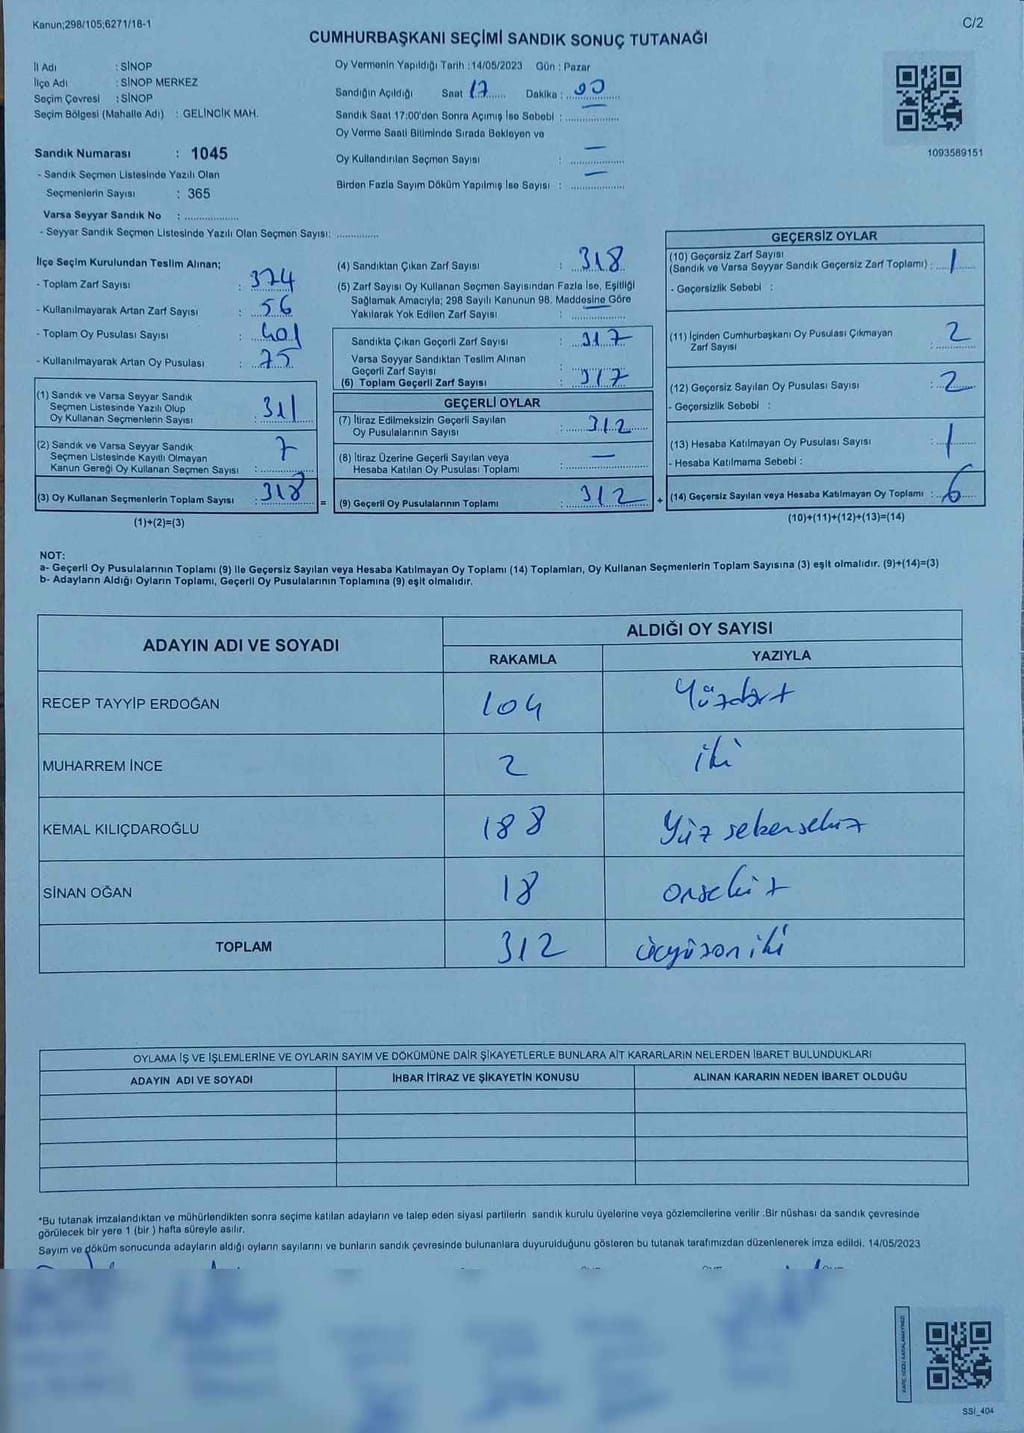 Kanun;298/105;6271/18-1
C/2
CUMHURBAŞKANI SEÇİMİ SANDIK SONUÇ TUTANAĞI
İl Adı : SİNOP
İlçe Adı : SİNOP MERKEZ
Seçim Çevresi : SİNOP
Seçim Bölgesi (Mahalle Adı) : GELİNCİK MAH.
Sandık Numarası : 1045
- Sandık Seçmen Listesinde Yazılı Olan
Seçmenlerin Sayısı : 365
Varsa Seyyar Sandık No : ..................
- Seyyar Sandık Seçmen Listesinde Yazılı Olan Seçmen Sayısı: ..............
Oy Vermenin Yapıldığı Tarih :14/05/2023 Gün : Pazar
Sandığın Açıldığı Saat 17 Dakika : 00
Sandık Saat 17:00'den Sonra Açımış İse Sebebi : ..................
Oy Verme Saati Bitiminde Sırada Bekleyen ve
Oy Kullandırılan Seçmen Sayısı : —
Birden Fazla Sayım Döküm Yapılmış İse Sayısı : —
1093589151
İlçe Seçim Kurulundan Teslim Alınan;
- Toplam Zarf Sayısı : 374
- Kullanılmayarak Artan Zarf Sayısı : 56
- Toplam Oy Pusulası Sayısı : 401
- Kullanılmayarak Artan Oy Pusulası : 75
(1) Sandık ve Varsa Seyyar Sandık
Seçmen Listesinde Yazılı Olup
Oy Kullanan Seçmenlerin Sayısı : 311
(2) Sandık ve Varsa Seyyar Sandık
Seçmen Listesinde Kayıtlı Olmayan
Kanun Gereği Oy Kullanan Seçmen Sayısı : 7
(3) Oy Kullanan Seçmenlerin Toplam Sayısı : 318 =
(1)+(2)=(3)
(4) Sandıktan Çıkan Zarf Sayısı : 318
(5) Zarf Sayısı Oy Kullanan Seçmen Sayısından Fazla İse, Eşitliği
Sağlamak Amacıyla; 298 Sayılı Kanunun 98. Maddesine Göre
Yakılarak Yok Edilen Zarf Sayısı : —
Sandıkta Çıkan Geçerli Zarf Sayısı : 317
Varsa Seyyar Sandıktan Teslim Alınan
Geçerli Zarf Sayısı :
(6) Toplam Geçerli Zarf Sayısı : 317
GEÇERLİ OYLAR
(7) İtiraz Edilmeksizin Geçerli Sayılan
Oy Pusulalarının Sayısı : 312
(8) İtiraz Üzerine Geçerli Sayılan veya
Hesaba Katılan Oy Pusulası Toplamı : —
(9) Geçerli Oy Pusulalarının Toplamı : 312 +
GEÇERSİZ OYLAR
(10) Geçersiz Zarf Sayısı
(Sandık ve Varsa Seyyar Sandık Geçersiz Zarf Toplamı) : 1
- Geçersizlik Sebebi :
(11) İçinden Cumhurbaşkanı Oy Pusulası Çıkmayan
Zarf Sayısı : 2
(12) Geçersiz Sayılan Oy Pusulası Sayısı : 2
- Geçersizlik Sebebi :
(13) Hesaba Katılmayan Oy Pusulası Sayısı : 1
- Hesaba Katılmama Sebebi :
(14) Geçersiz Sayılan veya Hesaba Katılmayan Oy Toplamı : 6
(10)+(11)+(12)+(13)=(14)
NOT:
a- Geçerli Oy Pusulalarının Toplamı (9) ile Geçersiz Sayılan veya Hesaba Katılmayan Oy Toplamı (14) Toplamları, Oy Kullanan Seçmenlerin Toplam Sayısına (3) eşit olmalıdır. (9)+(14)=(3)
b- Adayların Aldığı Oyların Toplamı, Geçerli Oy Pusulalarının Toplamına (9) eşit olmalıdır.
ADAYIN ADI VE SOYADI
ALDIĞI OY SAYISI
RAKAMLA YAZIYLA
RECEP TAYYİP ERDOĞAN 104 Yüzdört
MUHARREM İNCE 2 iki
KEMAL KILIÇDAROĞLU 188 Yüz seksensekiz
SİNAN OĞAN 18 onsekiz
TOPLAM 312 üçyüzoniki
OYLAMA İŞ VE İŞLEMLERİNE VE OYLARIN SAYIM VE DÖKÜMÜNE DAİR ŞİKAYETLERLE BUNLARA AİT KARARLARIN NELERDEN İBARET BULUNDUKLARI
ADAYIN ADI VE SOYADI İHBAR İTİRAZ VE ŞİKAYETİN KONUSU ALINAN KARARIN NEDEN İBARET OLDUĞU
*Bu tutanak imzalandıktan ve mühürlendikten sonra seçime katılan adayların ve talep eden siyasi partilerin sandık kurulu üyelerine veya gözlemcilerine verilir .Bir nüshası da sandık çevresinde
görülecek bir yere 1 (bir ) hafta süreyle asılır.
Sayım ve döküm sonucunda adayların aldığı oyların sayılarını ve bunların sandık çevresinde bulunanlara duyurulduğunu gösteren bu tutanak tarafımızdan düzenlenerek imza edildi. 14/05/2023
SSI_404